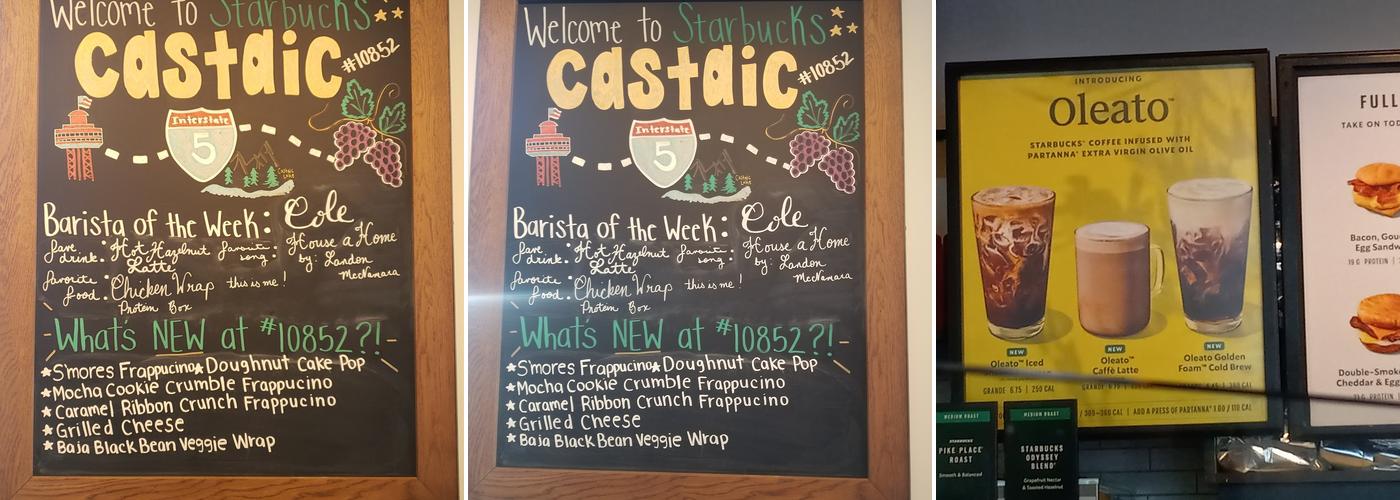 Welcome to Starbucks
castaic
#10852
Interstate
5
Barista of the Week: Cole
fave drink: Hot Hazelnut Latte
favorite song: House a Home by: Landon McNamara
favorite food: Chicken Wrap Protein Box
this is me!
What's NEW at #10852?!
★S'mores Frappucino★Doughnut Cake Pop
★Mocha Cookie Crumble Frappucino
★Caramel Ribbon Crunch Frappucino
★Grilled Cheese
★Baja Black Bean Veggie Wrap
Welcome to Starbucks
castaic
#10852
Interstate
5
Barista of the Week: Cole
fave drink: Hot Hazelnut Latte
favorite song: House a Home by: Landon McNamara
favorite food: Chicken Wrap Protein Box
this is me!
What's NEW at #10852?!
★S'mores Frappucino★Doughnut Cake Pop
★Mocha Cookie Crumble Frappucino
★Caramel Ribbon Crunch Frappucino
★Grilled Cheese
★Baja Black Bean Veggie Wrap
INTRODUCING
Oleato™
STARBUCKS® COFFEE INFUSED WITH
PARTANNA® EXTRA VIRGIN OLIVE OIL
NEW
Oleato™ Iced
GRANDE 6.75 | 250 CAL
NEW
Oleato™
Caffè Latte
NEW
Oleato Golden
Foam™ Cold Brew
ADD A PRESS OF PARTANNA® 1.00 / 110 CAL
MEDIUM ROAST
STARBUCKS
PIKE PLACE®
ROAST
Smooth & Balanced
MEDIUM ROAST
STARBUCKS
ODYSSEY
BLEND™
Grapefruit Nectar
& Toasted Hazelnut
FULL
TAKE ON TOD
Bacon, Gou
Egg Sandw
19 G PROTEIN
Double-Smoke
Cheddar & Egg